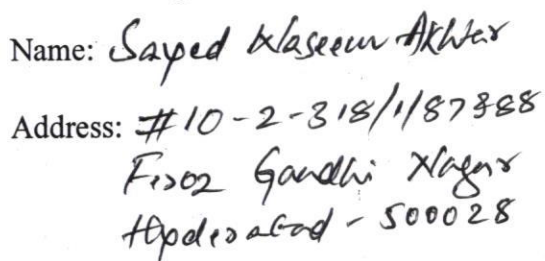 Name: Sayed Waseem Akhter
Address: #10-2-318/1/87&88
Firoz Gandhi Nagar
Hyderabad - 500028